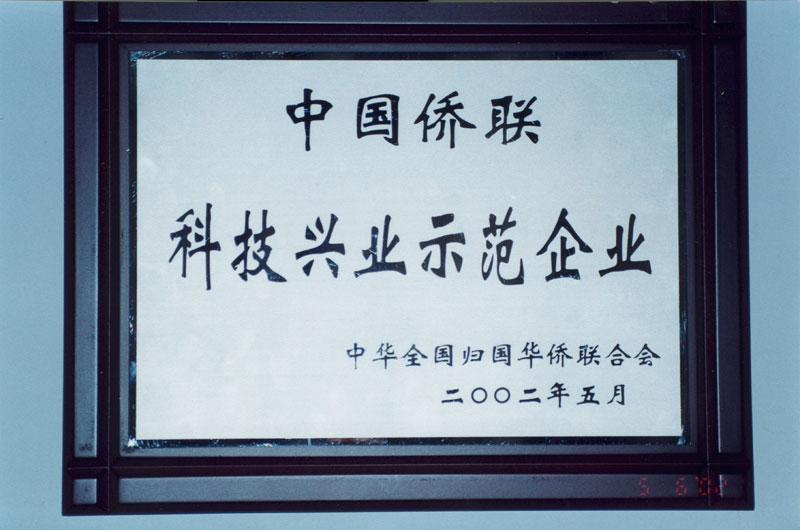 中国侨联
科技兴业示范企业
中华全国归国华侨联合会
二〇〇二年五月
5 6 '02